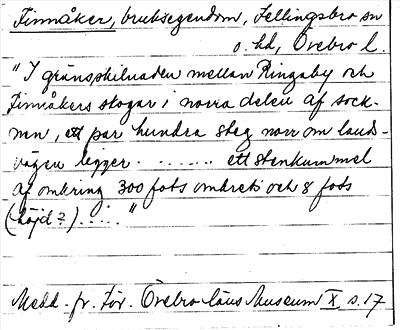 Finnåker, bruksegendom, Fellingsbro sn
o. hd, Örebro l.
"I gränsskilnaden mellan Ringaby och
Finnåkers skogar i norra delen af sock-
nen, ett par hundra steg norr om lands-
vägen ligger . . . . . . . ett stenkummel
af omkring 300 fots omkrets och 8 fots
(höjd?) . . . . . "
Medd. fr. För. Örebro läns Museum X s. 17